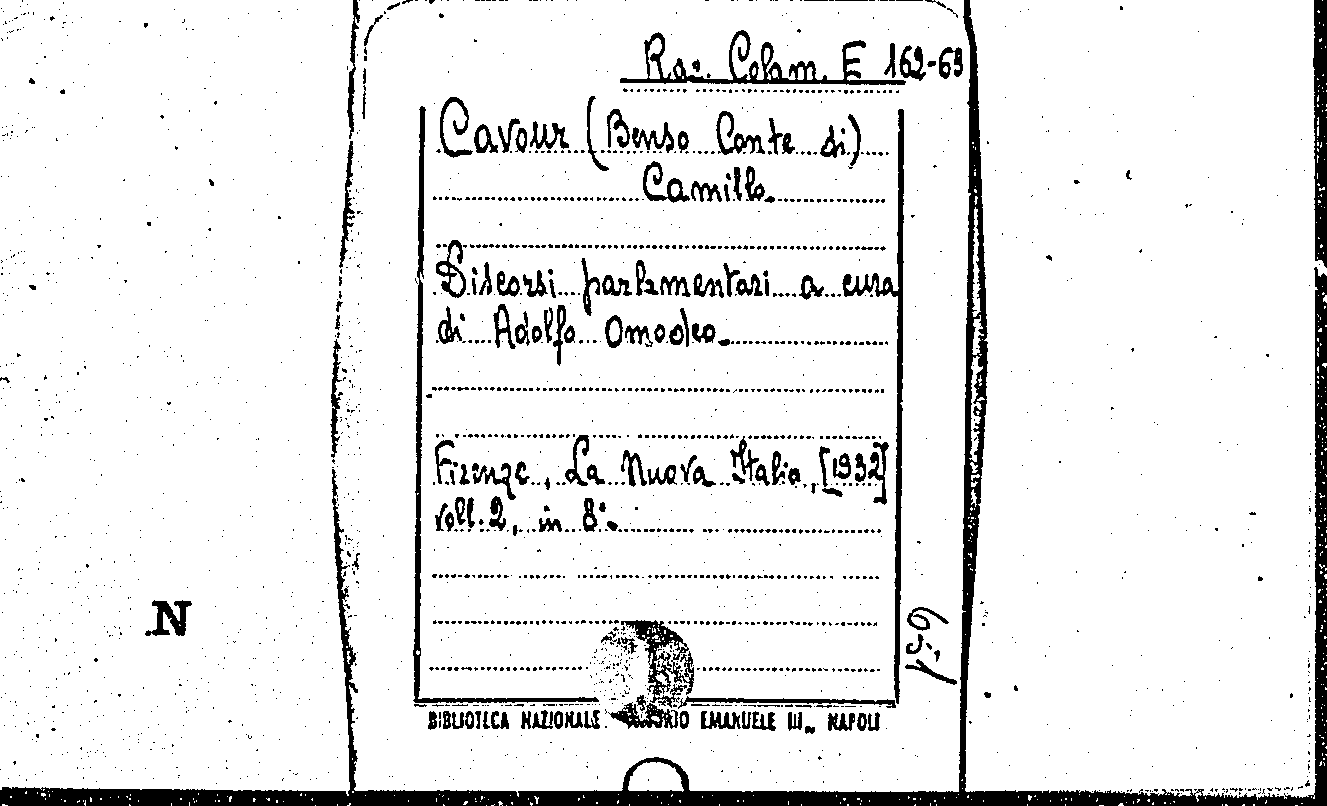 Rac. Colam. E 162-63
Cavour (Benso Conte di)
Camillo.
Discorsi parlamentari a cura
di Adolfo Omodeo.
Firenze, La Nuova Italia, [1932]
voll. 2, in 8°.
N
BIBLIOTECA NAZIONALE EMANUELE III„ NAPOLI